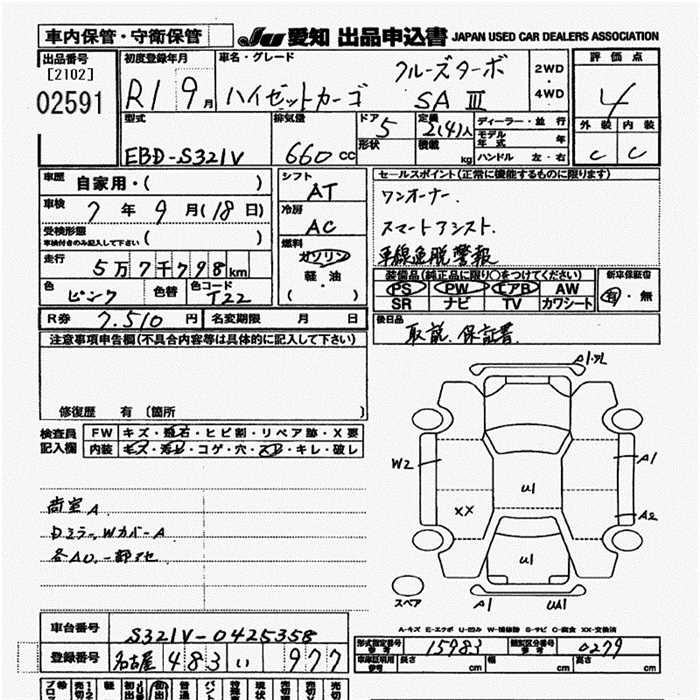 車内保管・守衛保管 JU 愛知 出品申込書 JAPAN USED CAR DEALERS ASSOCIATION
出品番号 [2102] 02591
初度登録年月 R1 9月
車名・グレード ハイゼットカーゴ クルーズターボ SA Ⅲ
2WD・4WD
評価点 4
外装 C 内装 C
型式 EBD-S321V
排気量 660cc
ドア 5 形状
定員 2(4)人 積載 kg
ディーラー・並行
モデル年式 年
ハンドル 左・右
車歴 自家用・( )
車検 7年9月(18日)
受検形態 車検付きのみ記入して下さい ( )
走行 5万7千798km
色 ピンク 色替 色コード T22
シフト AT
冷房 AC
燃料 ガソリン・軽油 ( )
セールスポイント(正常に機能するものに限ります)
ワンオーナー.
スマートアシスト.
車線逸脱警報
装備品(純正品に限り○をつけてください)
PS PW エアB AW
SR ナビ TV カワシート
新車保証書 有・無
R券 7.510円 名変期限 月 日
後日品 取説. 保証書.
注意事項申告欄(不具合内容等は具体的に記入して下さい)
修復歴 有 〔箇所 〕
検査員記入欄
FW キズ・飛石・ヒビ割・リペア跡・X要
内装 キズ・汚レ・コゲ・穴・スレ・キレ・破レ
荷室A
DミラーWカバーA
各AU.一部アセ
W2
XX
U1
U1
A1
A2
A1
UA1
スペア
A-キズ E-エクボ U-凹み W-補修跡 S-サビ C-腐食 XX-交換済
車台番号 S321V-0425358
登録番号 名古屋 483 い 977
型式指定番号 15983 類別区分番号 0279
長さ cm 幅 cm 高さ cm